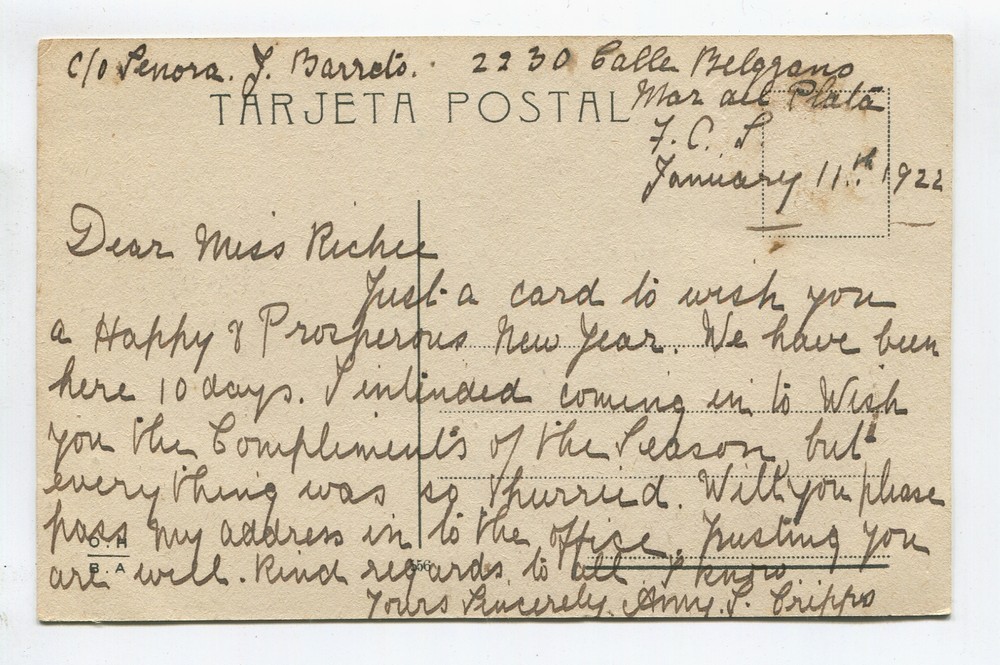 c/o Senora. J. Barreto. 2230 Calle Belgrano
TARJETA POSTAL
Mar del Plata
F. C. S.
January 11th 1922
Dear Miss Richee
Just a card to wish you
a Happy & Prosperous New Year. We have been
here 10 days. I intended coming in to Wish
you the Compliments of the Season, but
everything was so hurried. Will you please
pass my address in to the office. Trusting you
are well. Kind regards to all I know
Yours Sincerely. Amy. S. Cripps
B. A
556